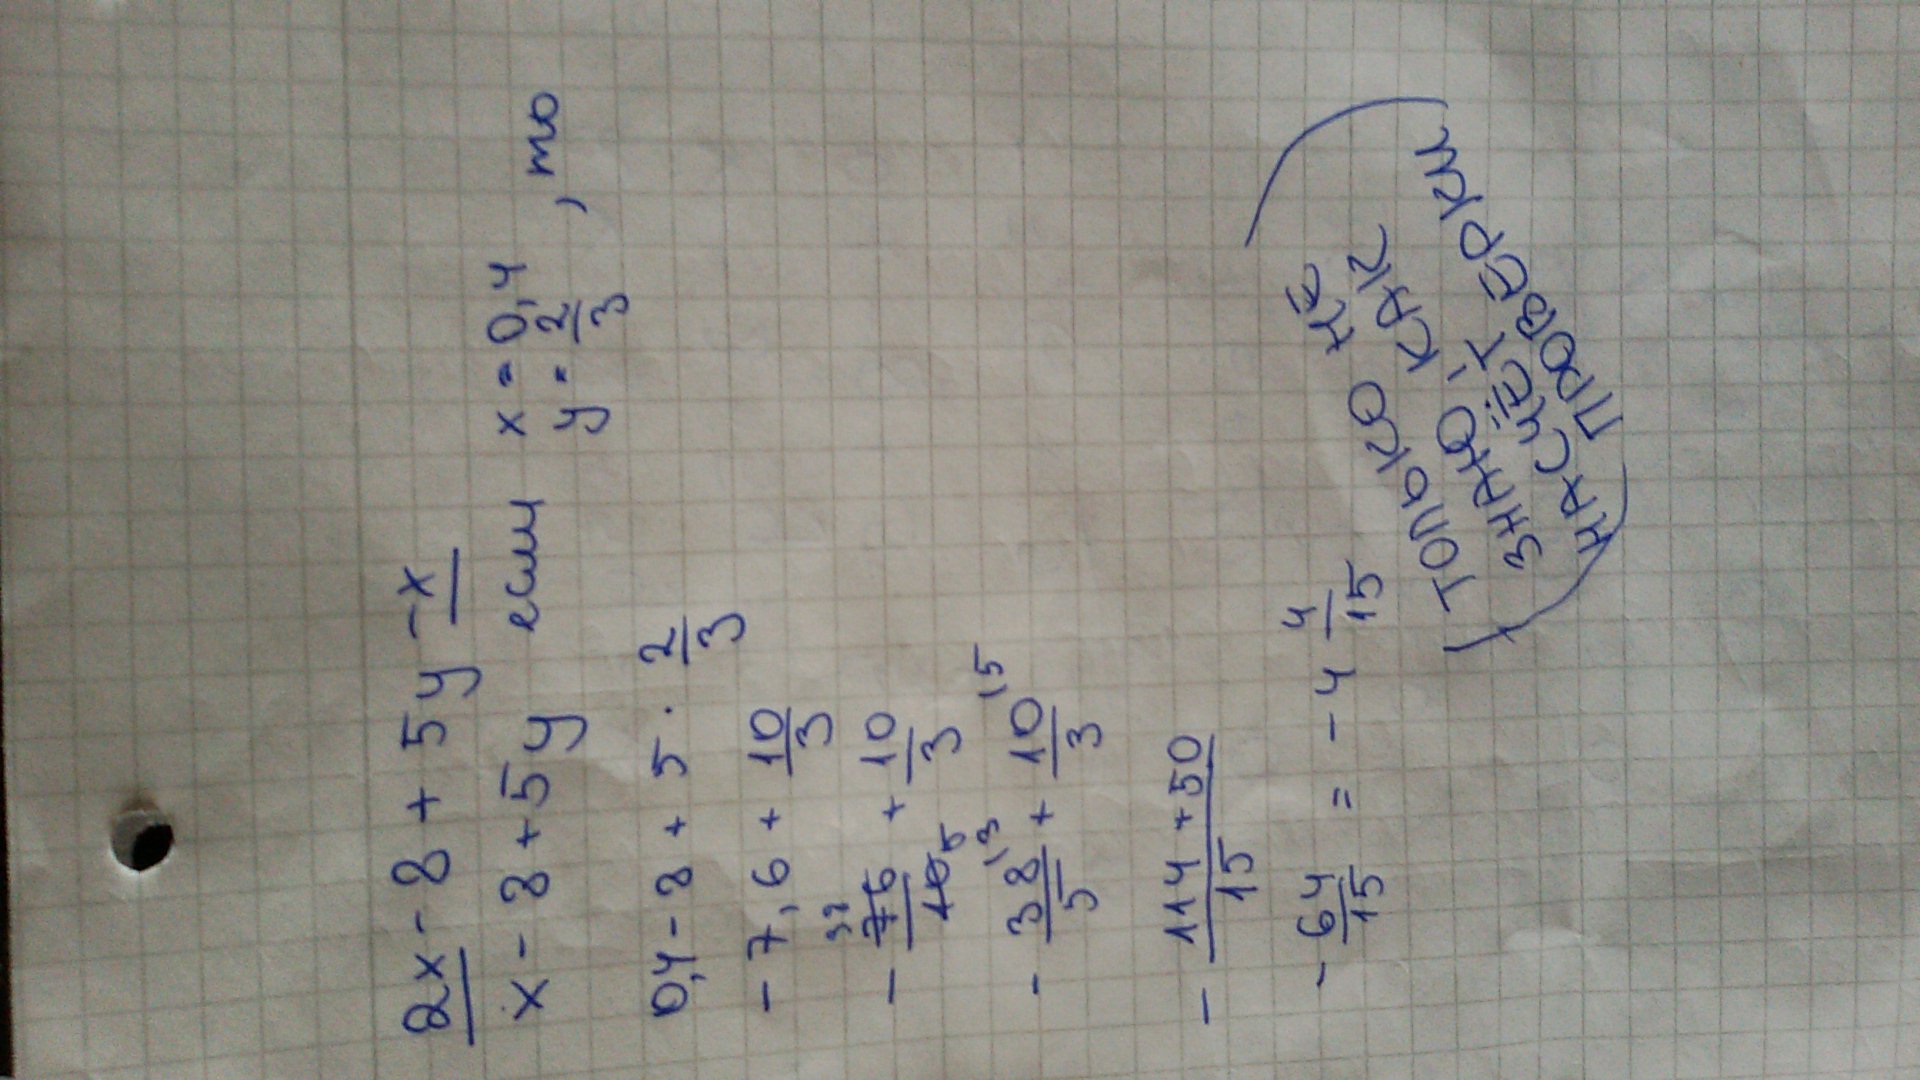 2x - 8 + 5y - x
x - 8 + 5y если x = 0,4
y = 2/3 , то
0,4 - 8 + 5 · 2/3
- 7,6 + 10/3
- 76/10 + 10/3
38 5
- 38/5 + 10/3
13 15
- 114 + 50/15
- 64/15 = - 4 4/15
(ТОЛЬКО НЕ
ЗНАНО, КАК
НАСЧЁТ
ПРОВЕРКИ)